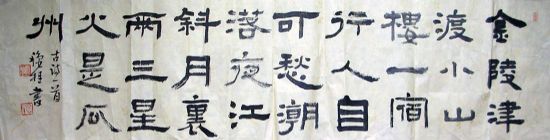 金陵津
渡小山
樓一宿
行人自
可愁潮
落夜江
斜月裏
兩三星
火是瓜
州
古诗一首
書